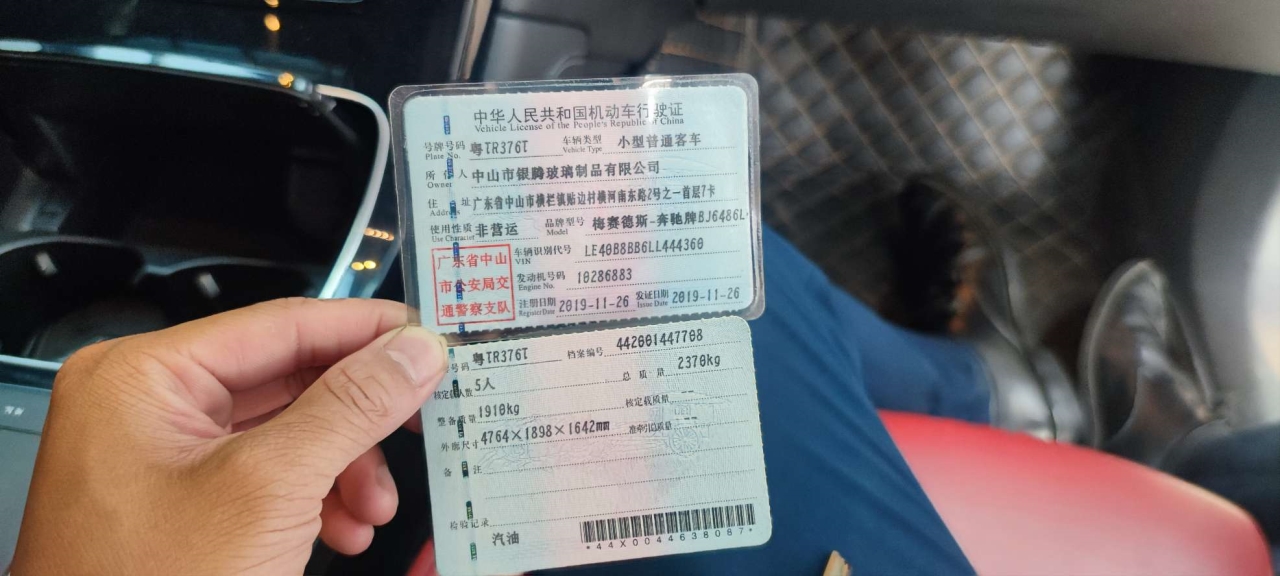 中华人民共和国机动车行驶证
Vehicle License of the People's Republic of China
号牌号码 粤TR376T 车辆类型 小型普通客车
Plate No. Vehicle Type
所有人 中山市银腾玻璃制品有限公司
Owner
住址 广东省中山市横栏镇贴边村横河南东路2号之一首层7卡
Address
使用性质 非营运 品牌型号 梅赛德斯-奔驰牌BJ6486L
Use Character Model
广东省中山
市公安局交
通警察支队
车辆识别代号 LE40B8BB6LL444360
VIN
发动机号码 10286883
Engine No.
注册日期 2019-11-26 发证日期 2019-11-26
Register Date Issue Date
号码 粤TR376T 档案编号 442001447708
核定载人数 5人 总质量 2370kg
整备质量 1910kg 核定载质量 --
外廓尺寸 4764×1898×1642mm 准牵引总质量 --
备注
检验记录
汽油
*44X0044638087*